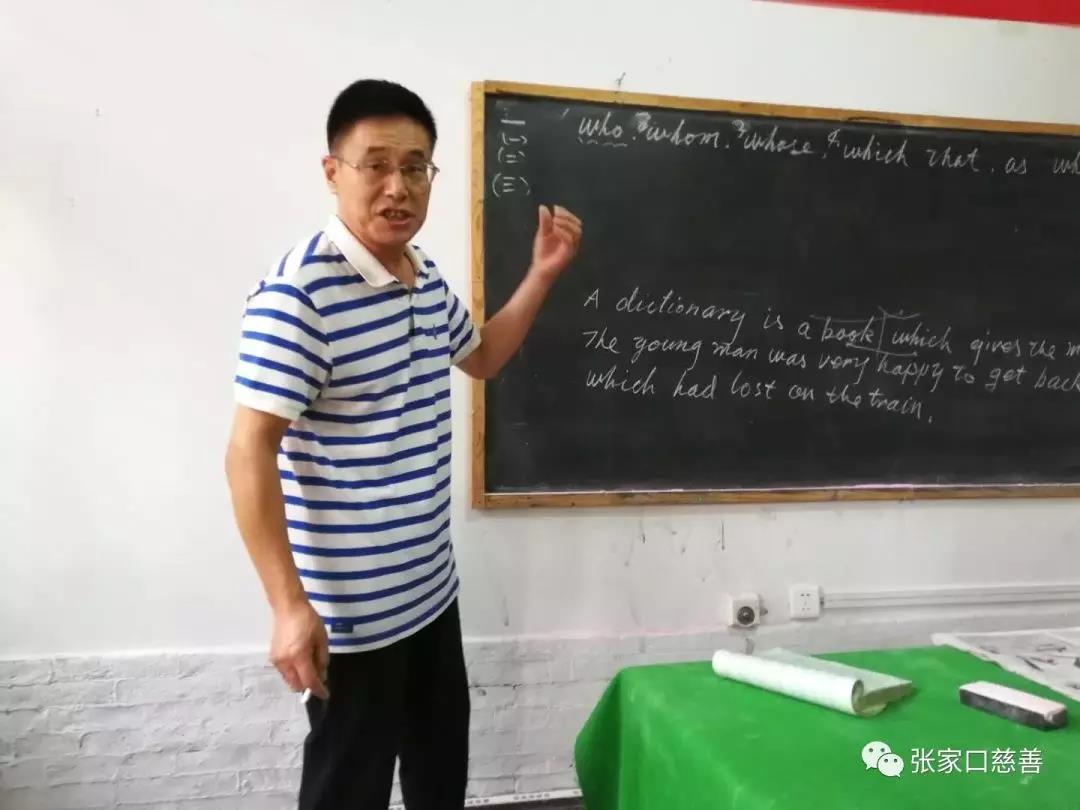 一
(一)
(二)
(三)
1 who 2 whom 3 whose 4 which that as wh
A dictionary is a book which gives the m
The young man was very happy to get back
which had lost on the train.
张家口慈善